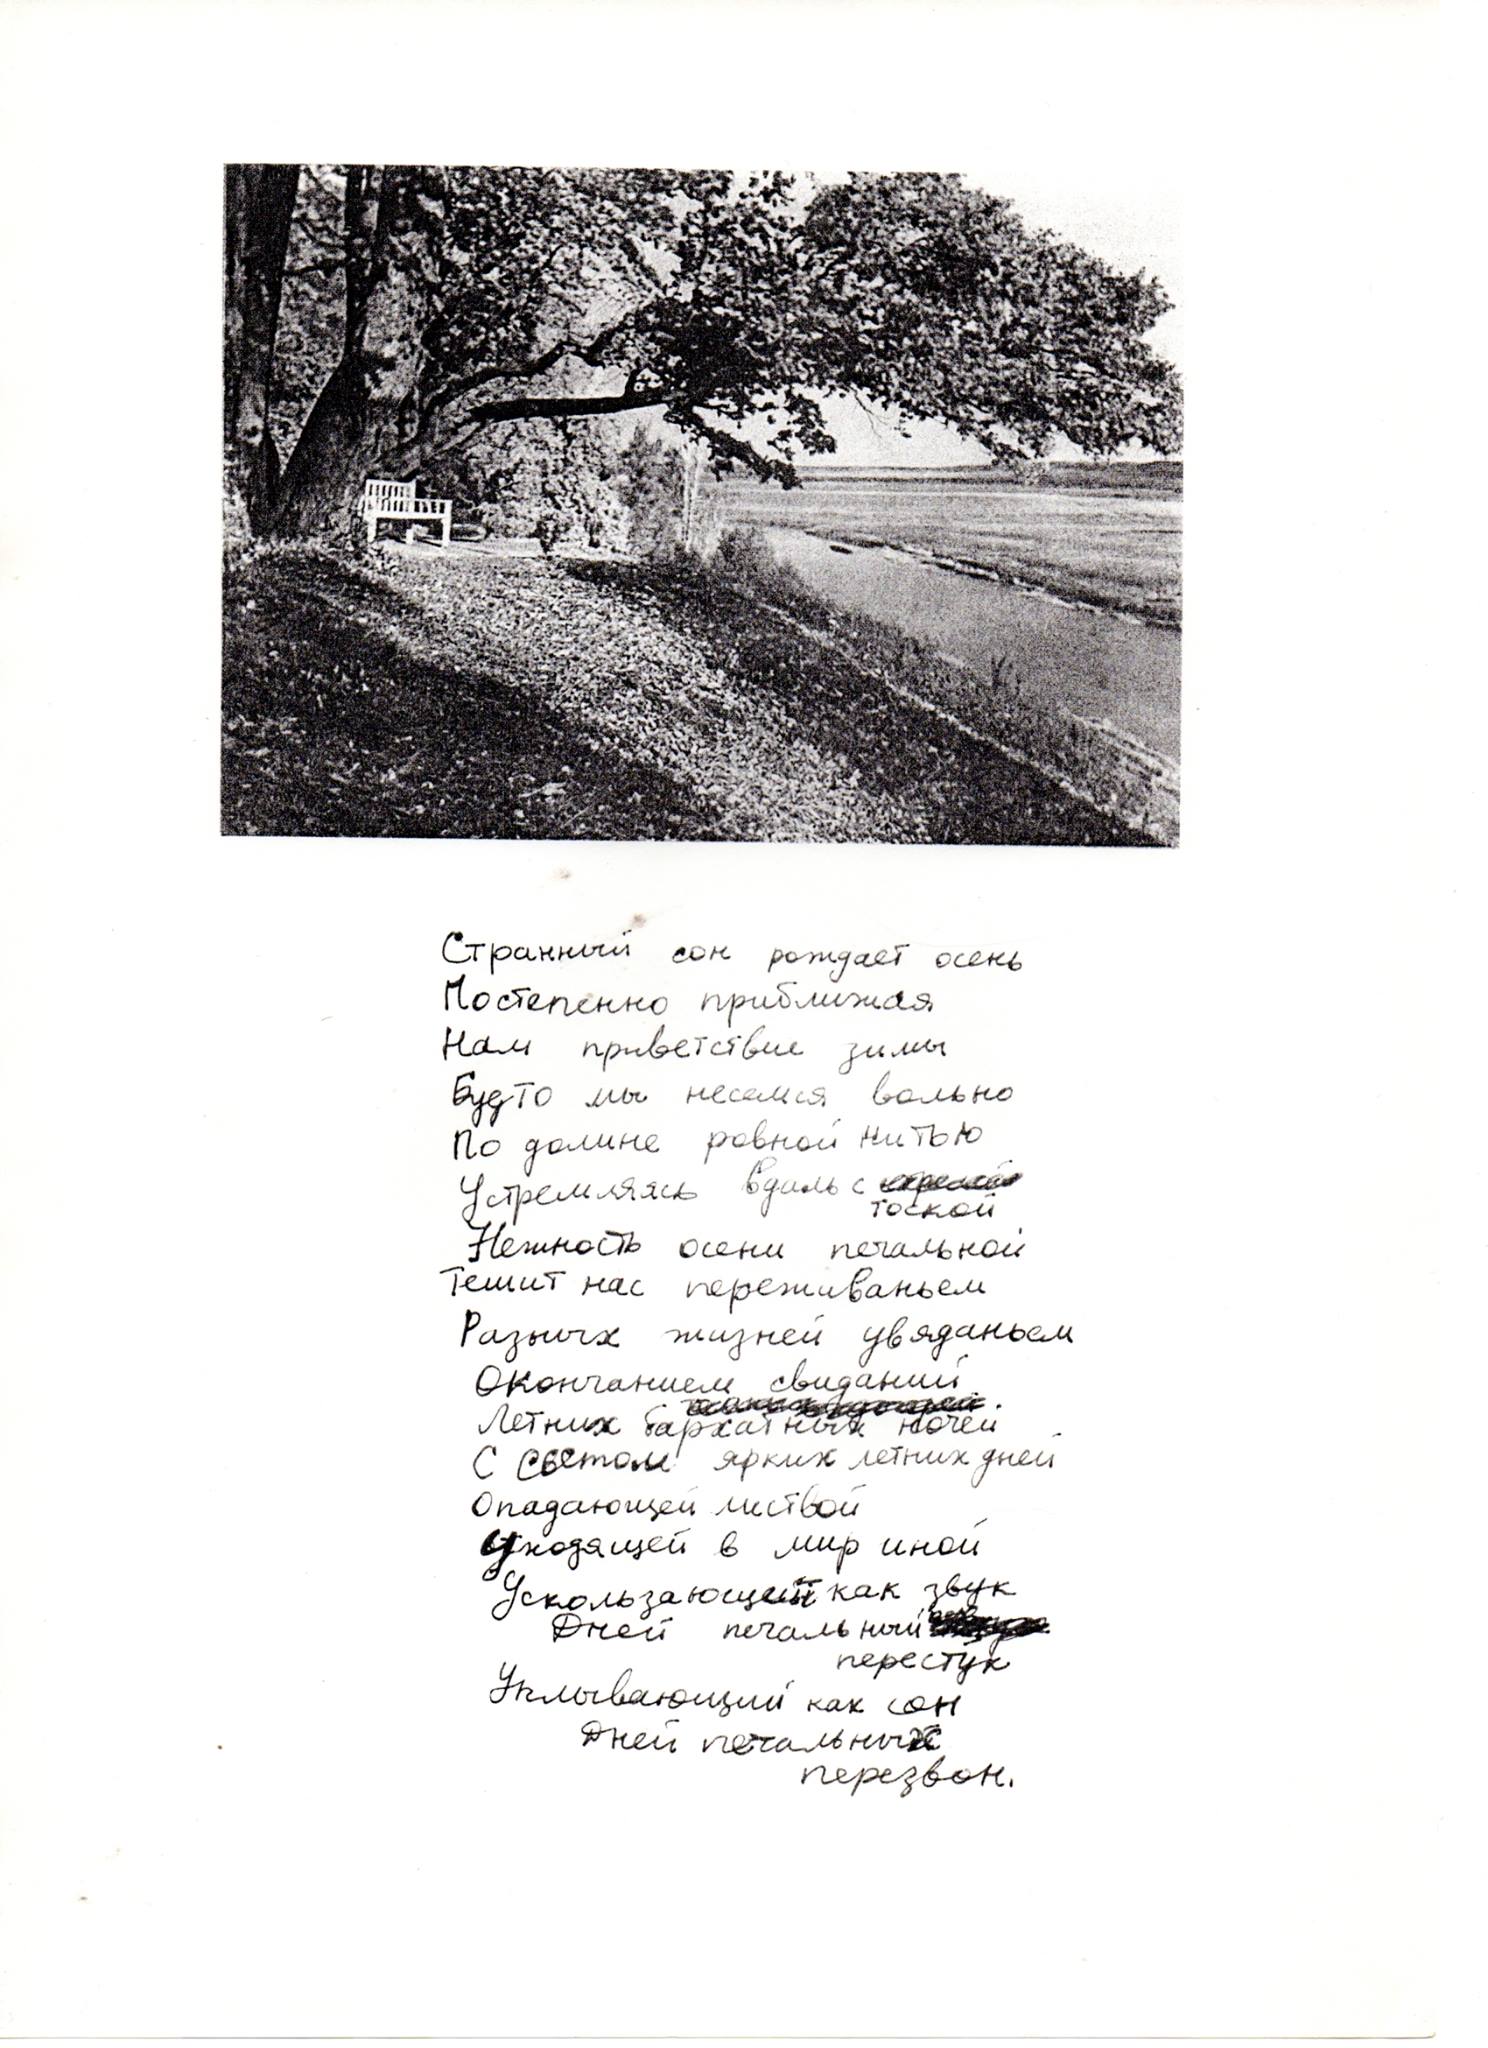 Странный сон рождает осень
Постепенно приближая
Нам приветствие зимы
Будто мы несемся вольно
По долине ровной нитью
Устремляясь вдаль с
тоской
Нежность осени печальной
Тешит нас переживаньем
Разных жизней увяданьем
Окончанием свиданий
Летних бархатных ночей
С светом ярких летних дней
Опадающей листвой
Уходящей в мир иной
Ускользающей как звук
Дней печальный
перестук
Уплывающий как сон
Дней печальных
перезвон.